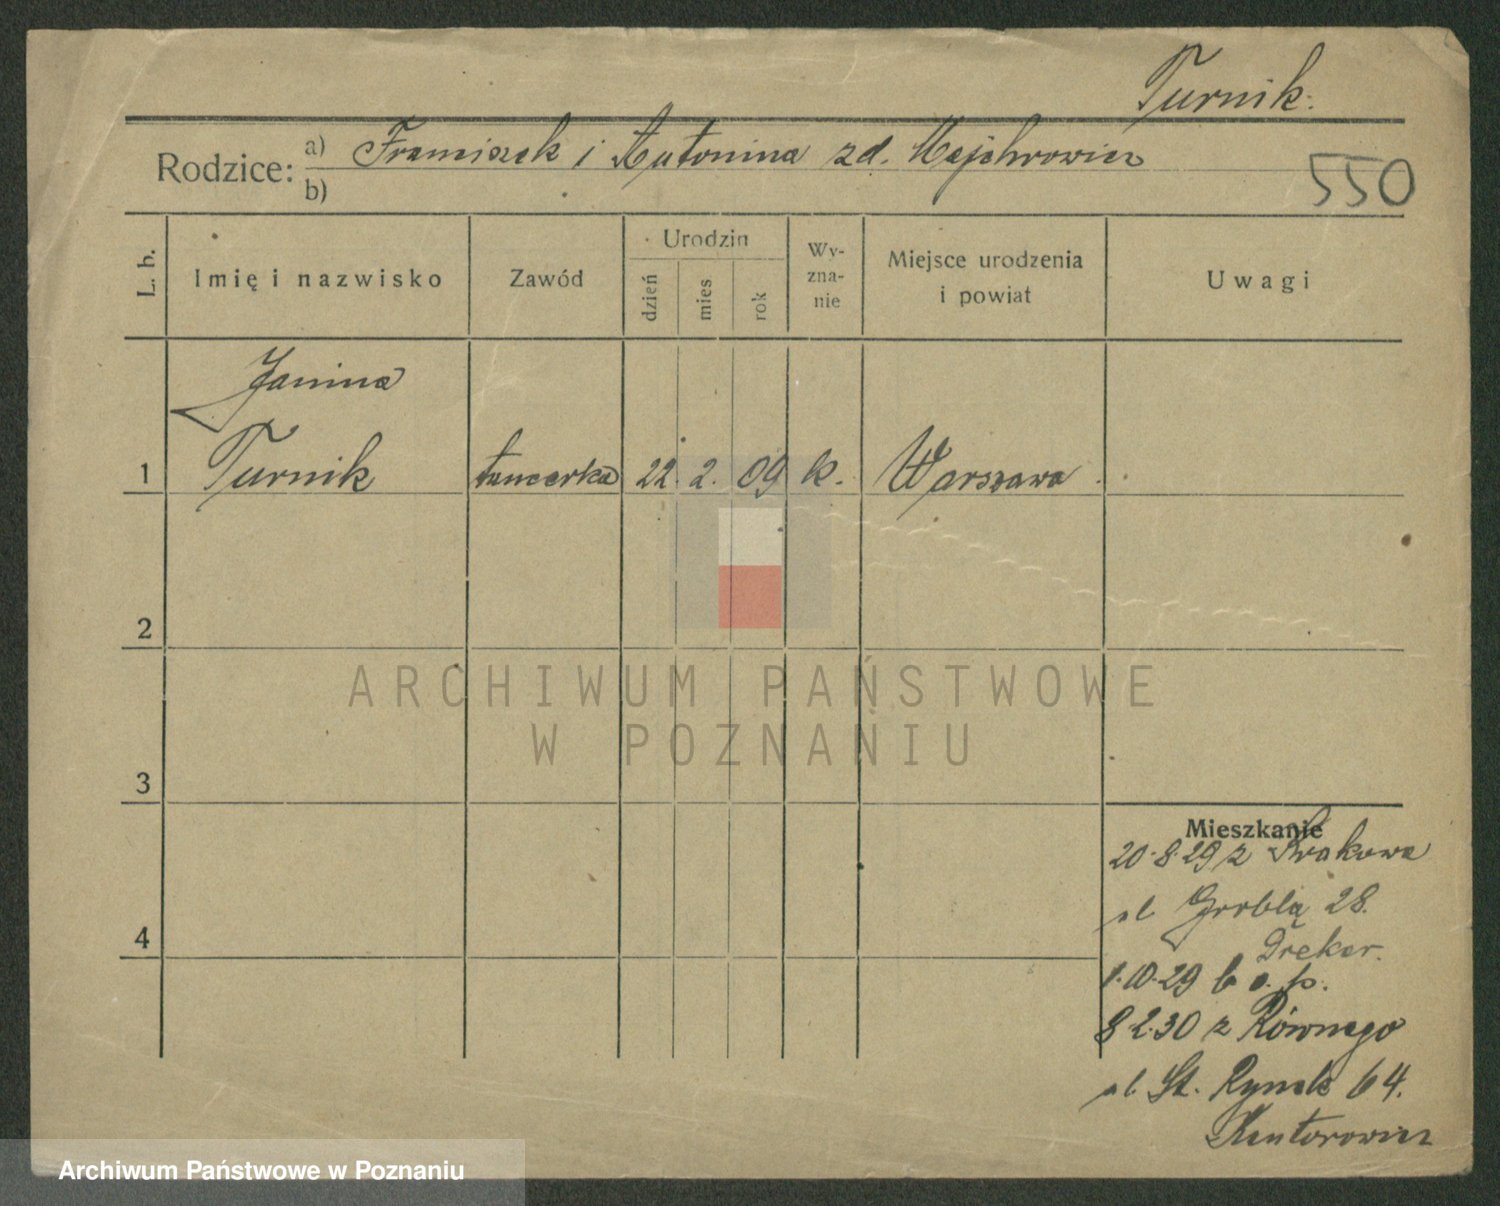 Turnik.
Rodzice: a) Franciszek i Antonina zd. Majchrowicz
b)
550
L. b.
Imię i nazwisko
Zawód
Urodzin
dzień
mies
rok
Wy-
zna-
nie
Miejsce urodzenia
i powiat
Uwagi
Janina
1 Turnik tancerka 22. 2. 09 k. Warszawa
2
3
4
Mieszkanie
20.8.29 z Krakowa
ul Groblą 28.
Dreker.
1.10.29 b o. p.
8 2.30 z Równego
ul St. Rynek 64.
Kantorowicz
ARCHIWUM PAŃSTWOWE
W POZNANIU
Archiwum Państwowe w Poznaniu